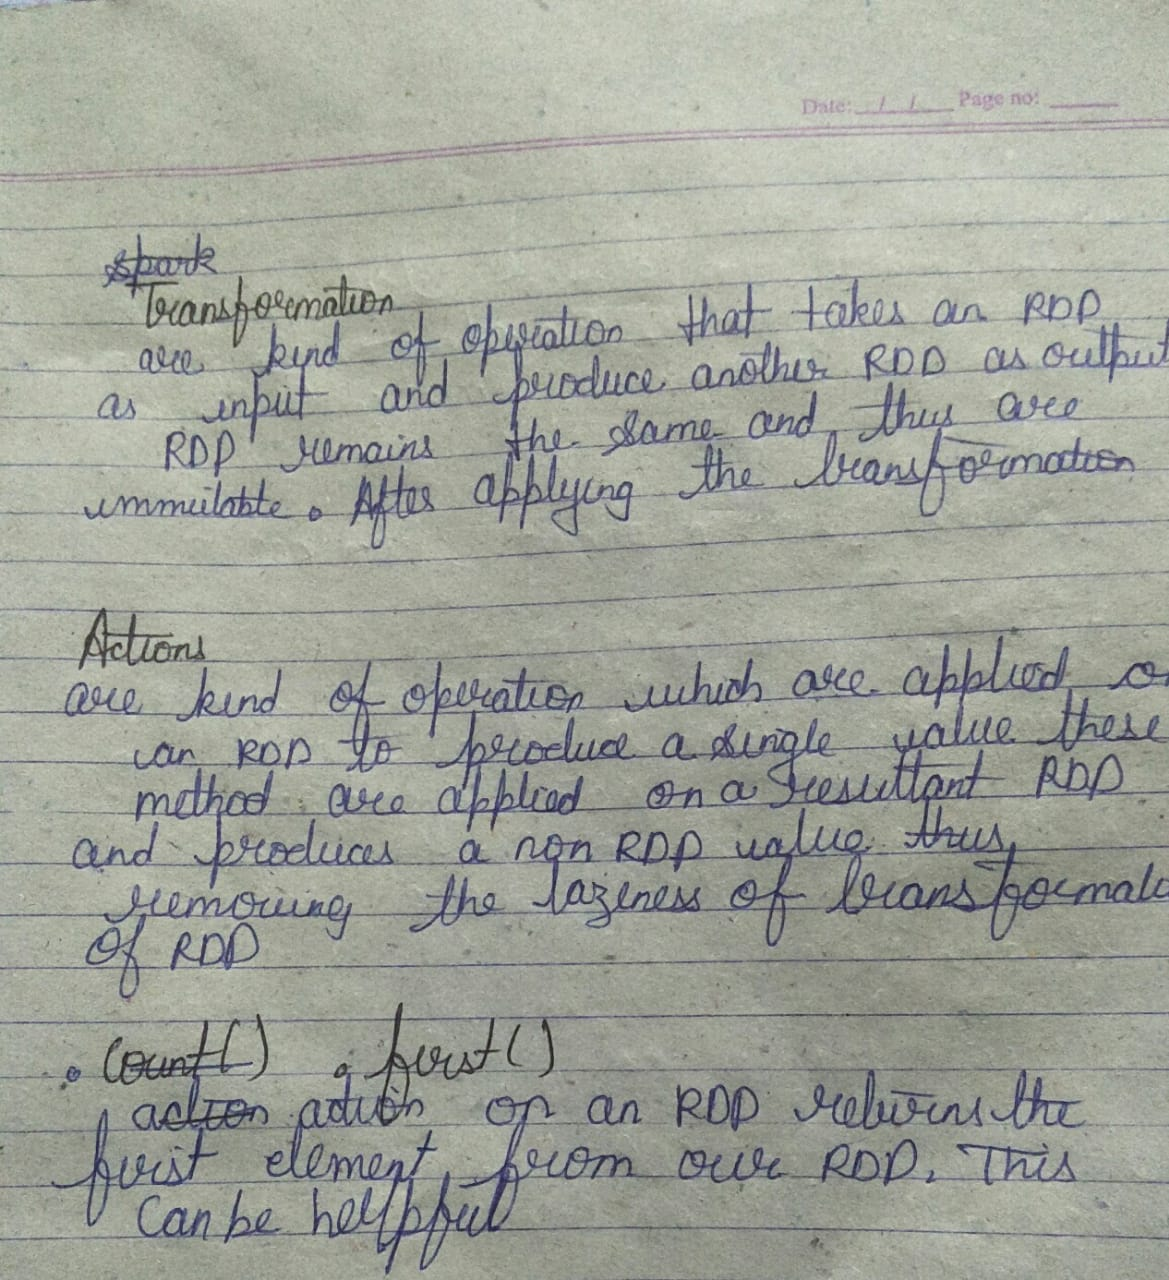 Date: / / Page no:
spark
Transformation
are kind of operation that takes an RDD
as input and produce another RDD as output
RDD remains the same and thus are
immutable. After applying the transformation
Actions
are kind of operation which are applied on
an RDD to produce a single value these
method are applied on a resultant RDD
and produces a non RDD value thus
removing the laziness of transformati
of RDD
• Count() • first()
action action on an RDD returns the
first element from our RDD. This
Can be hellpful